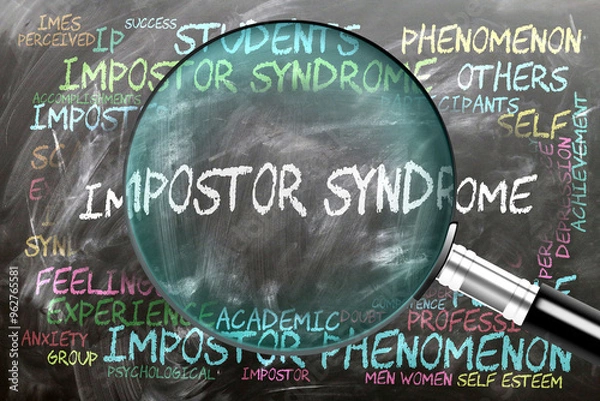 IMES
PERCEIVED
IP
SUCCESS
STUDENTS
PHENOMENON
IMPOSTOR SYNDROME
OTHERS
ACCOMPLISHMENTS
PARTICIPANTS
IMPOST
SELF
ACHIEVEMENT
DEPRESSION
IMPOSTOR SYNDROME
SYND
FEELING
EXPERIENCE
ACADEMIC
DOUBT
PROFESSI
ANXIETY
IMPOSTOR PHENOMENON
GROUP
PSYCHOLOGICAL
IMPOSTOR
MEN WOMEN
SELF ESTEEM
Adobe Stock | #962765581